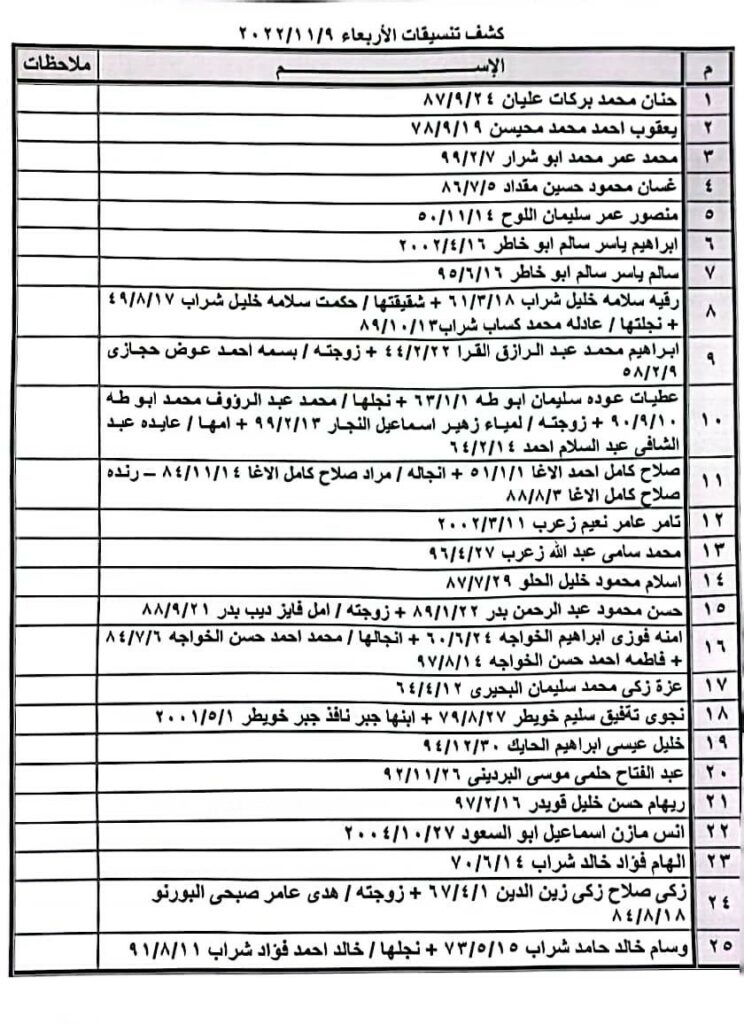 كشف تنسيقات الأربعاء ٢٠٢٢/١١/٩
م الإســـــــم ملاحظات
١ حنان محمد بركات عليان ٨٧/٩/٢٤
٢ يعقوب احمد محمد محيسن ٧٨/٩/١٩
٣ محمد عمر محمد ابو شرار ٩٩/٢/٧
٤ غسان محمود حسين مقداد ٨٦/٧/٥
٥ منصور عمر سليمان اللوح ٥٠/١١/١٤
٦ ابراهيم ياسر سالم ابو خاطر ٢٠٠٢/٤/١٦
٧ سالم ياسر سالم ابو خاطر ٩٥/٦/١٦
٨ رقيه سلامه خليل شراب ٦١/٣/١٨ + شقيقتها / حكمت سلامه خليل شراب ٤٩/٨/١٧
+ نجلتها / عادله محمد كساب شراب٨٩/١٠/١٣
٩ ابراهيم محمد عبد الرازق القرا ٤٤/٢/٢٢ + زوجته / بسمه احمد عوض حجازى
٥٨/٢/٩
١٠ عطيات عوده سليمان ابو طه ٦٣/١/١ + نجلها / محمد عبد الرؤوف محمد ابو طه
٩٠/٩/١٠ + زوجته / لمياء زهير اسماعيل النجار ٩٩/٢/١٣ + امها / عايده عبد
الشافى عبد السلام احمد ٦٤/٢/١٤
١١ صلاح كامل احمد الاغا ٥١/١/١ + انجاله / مراد صلاح كامل الاغا ٨٤/١١/١٤ – رنده
صلاح كامل الاغا ٨٨/٨/٣
١٢ تامر عامر نعيم زعرب ٢٠٠٢/٣/١١
١٣ محمد سامى عبد الله زعرب ٩٦/٤/٢٧
١٤ اسلام محمود خليل الحلو ٨٧/٧/٢٩
١٥ حسن محمود عبد الرحمن بدر ٨٩/١/٢٢ + زوجته / امل فايز ديب بدر ٨٨/٩/٢١
١٦ امنه فوزى ابراهيم الخواجه ٦٠/٦/٢٤ + انجالها / محمد احمد حسن الخواجه ٨٤/٧/٦
+ فاطمه احمد حسن الخواجه ٩٧/٨/١٤
١٧ عزة زكى محمد سليمان البحيرى ٦٤/٤/١٢
١٨ نجوى توفيق سليم خويطر ٧٩/٨/٢٧ + ابنها جبر نافذ جبر خويطر ٢٠٠١/٥/١
١٩ خليل عيسى ابراهيم الحايك ٩٤/١٢/٣٠
٢٠ عبد الفتاح حلمى موسى البردينى ٩٢/١١/٢٦
٢١ ريهام حسن خليل قويدر ٩٧/٢/١٦
٢٢ انس مازن اسماعيل ابو السعود ٢٠٠٤/١٠/٢٧
٢٣ الهام فؤاد خالد شراب ٧٠/٦/١٤
٢٤ زكى صلاح زكى زين الدين ٦٧/٤/١ + زوجته / هدى عامر صبحى البورنو
٨٤/٨/١٨
٢٥ وسام خالد حامد شراب ٧٣/٥/١٥ + نجلها / خالد احمد فؤاد شراب ٩١/٨/١١